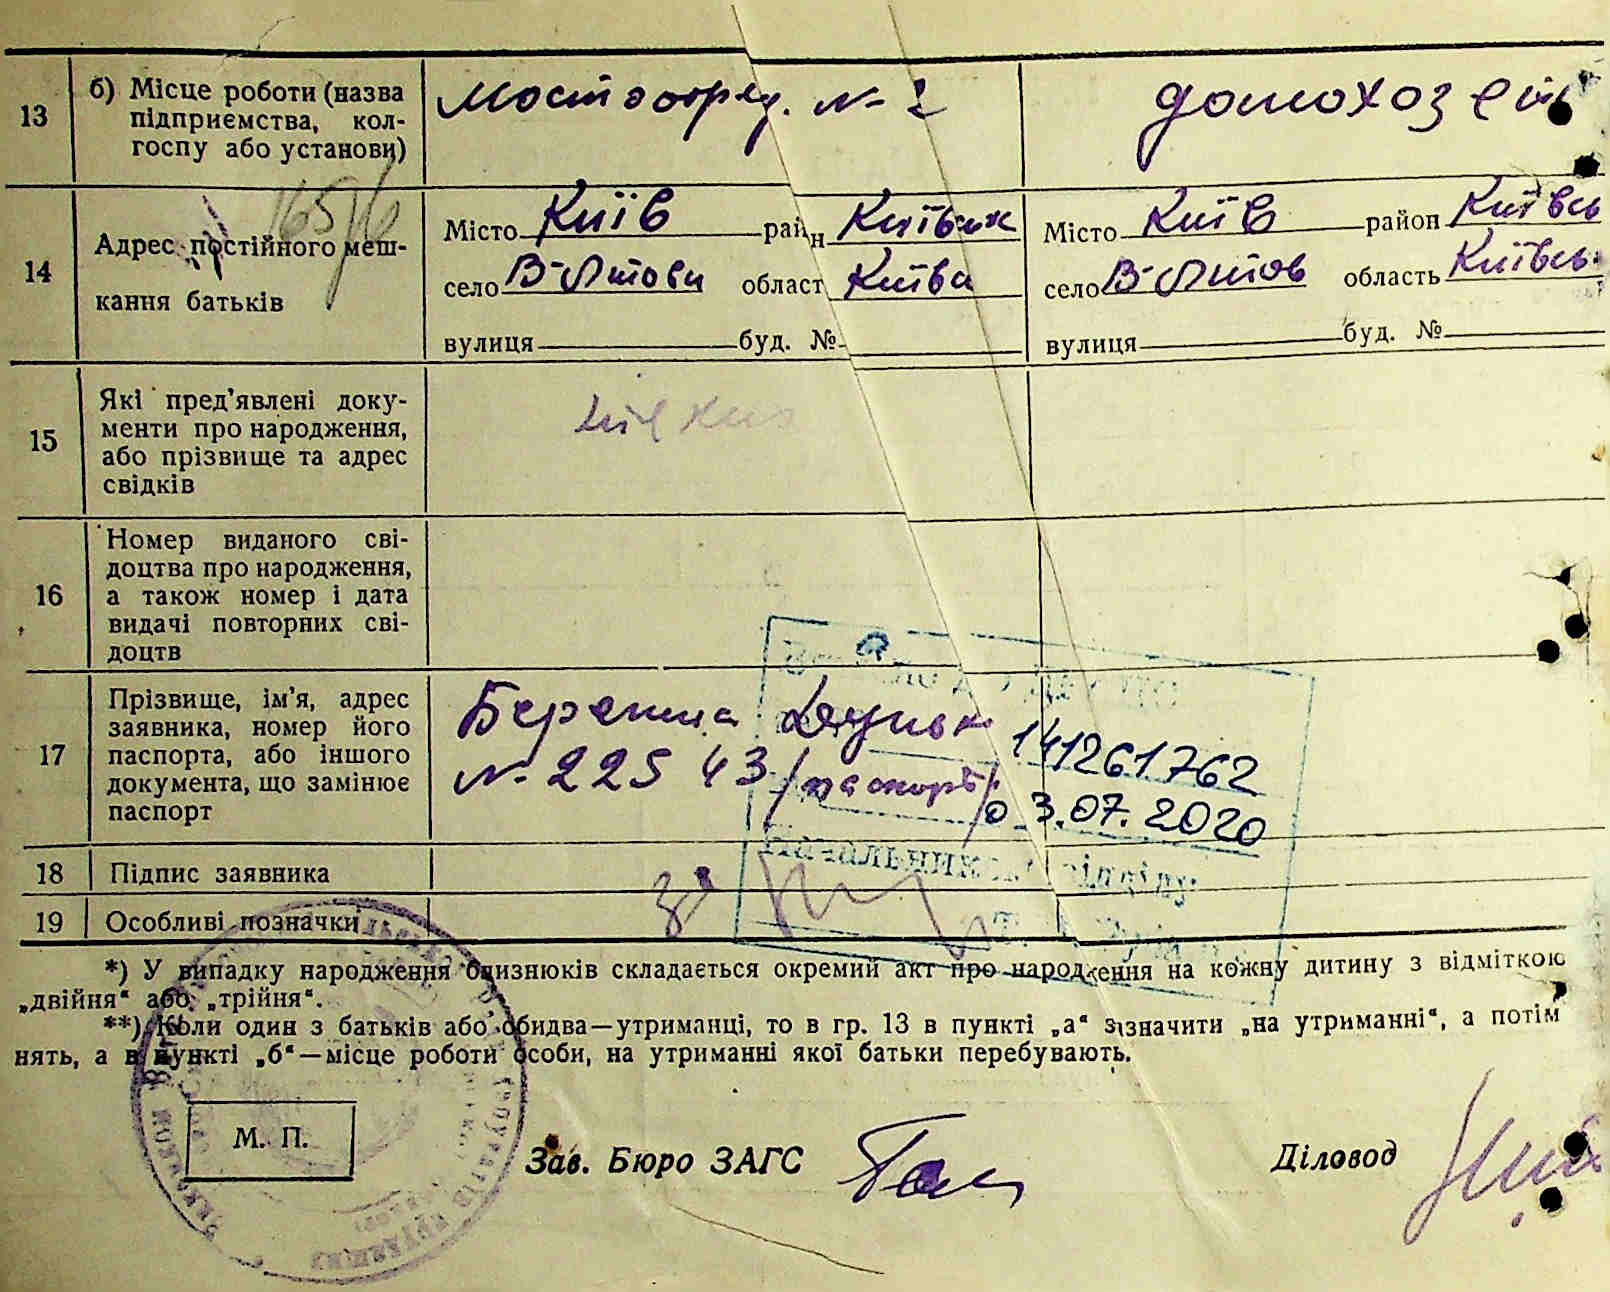 13
б) Місце роботи (назва
підприємства, кол-
госпу або установи)
Мостоотряд. № 2
165/6
14
Адрес постійного меш-
кання батьків
Місто Київ район Київськ
село область Київсь
вулиця буд. №
Місто Київ район Київсь
село область Київсь
вулиця буд. №
15
Які пред'явлені доку-
менти про народження,
або прізвище та адрес
свідків
16
Номер виданого сві-
доцтва про народження,
а також номер і дата
видачі повторних сві-
доцтв
17
Прізвище, ім'я, адрес
заявника, номер його
паспорта, або іншого
документа, що замінює
паспорт
№ 22543 /паспорт/
141261762
03.07.2020
Начальник відділу
18 Підпис заявника
19 Особливі позначки
*) У випадку народження близнюків складається окремий акт про народження на кожну дитину з відміткою
„двійня“ або „трійня“.
**) Коли один з батьків або обидва—утриманці, то в гр. 13 в пункті „а“ зазначити „на утриманні“, а потім
нять, а в пункті „б“—місце роботи особи, на утриманні якої батьки перебувають.
М. П.
Зав. Бюро ЗАГС
Діловод